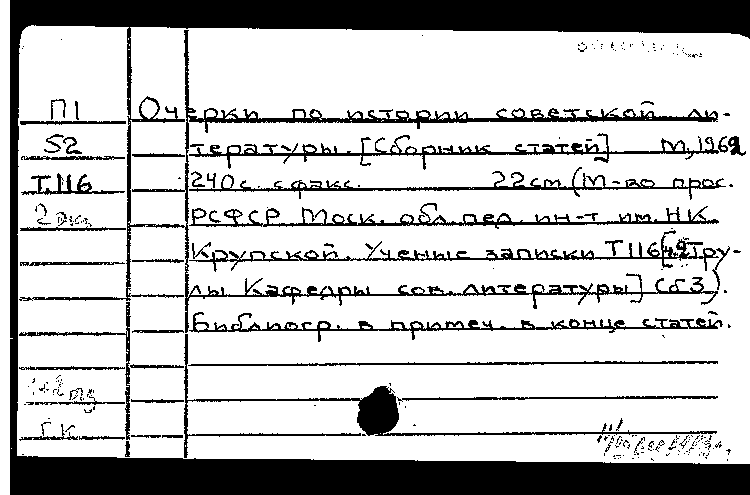 П1 Очерки по истории советской ли-
52 тературы. [Сборник статей] М, 1962
Т.116 240 с. с факс. 22cm. (М-во прос.
2 экз РСФСР Моск. обл. пед. ин-т им. Н К.
Крупской. Ученые записки Т 116 [ч.2 Тру-
ды Кафедры сов. литературы] Сб 3).
Библиогр. в примеч. в конце статей.
ГК